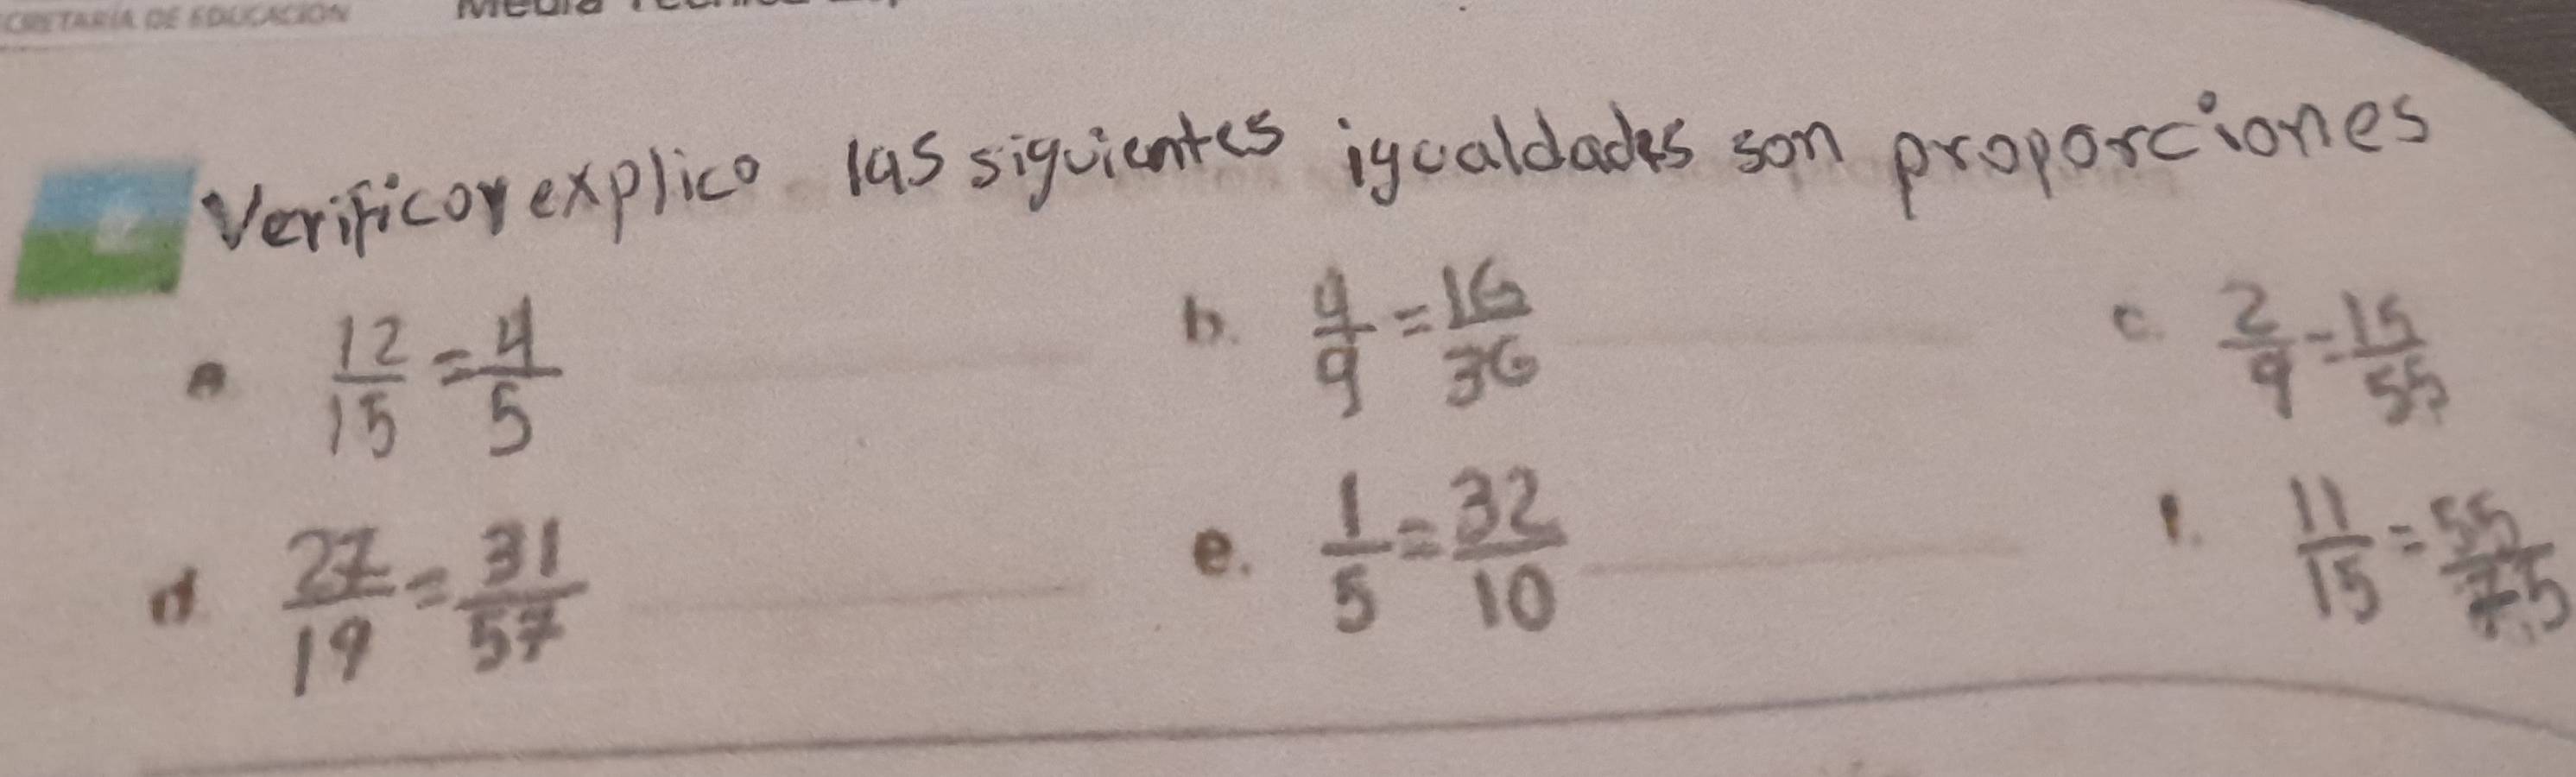 CRETARÍA DE EDUCACIÓN
Verifico y explico las siguientes igualdades son proporciones
a 12/15 = 4/5
b. 4/9 = 16/36
c. 2/9 = 15/55
d 27/19 = 31/57
e. 1/5 = 32/10
f. 11/15 = 55/75